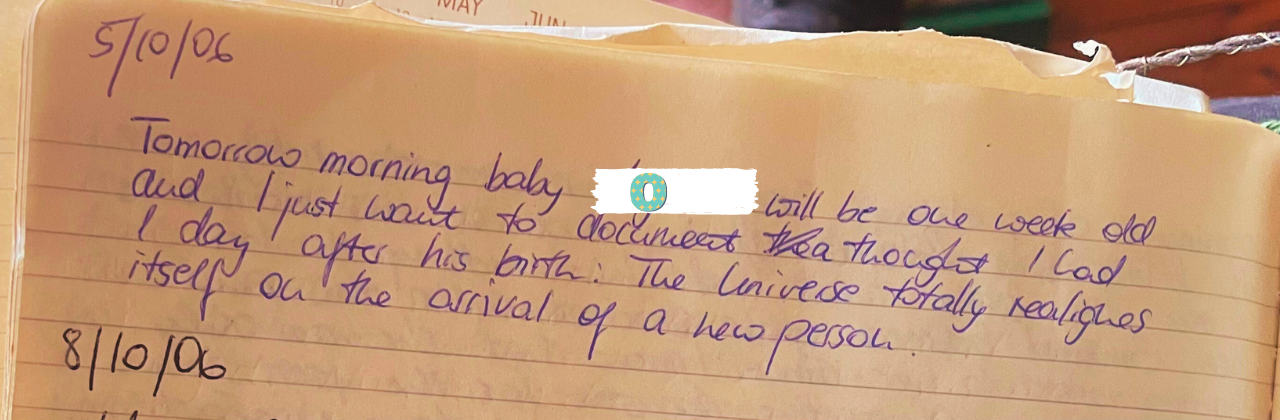 MAY JUN
5/10/06
Tomorrow morning baby O will be one week old
and I just want to document a thought I had
1 day after his birth: The Universe totally realignes
itself on the arrival of a new person.
8/10/06